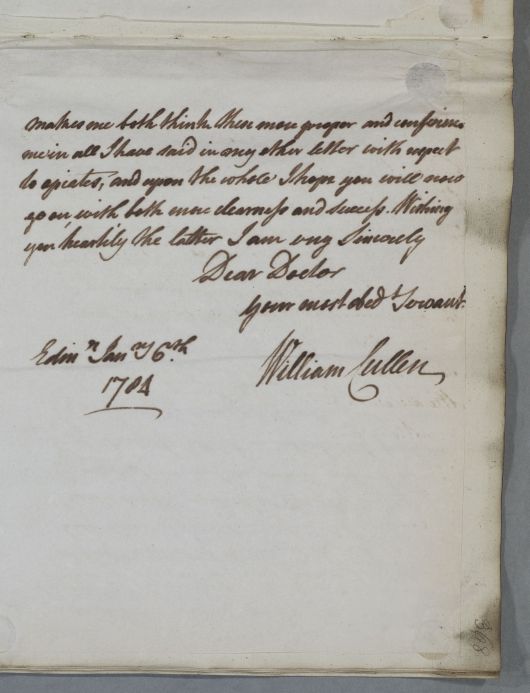 makes me both think these more proper and confirms
me in all I have said in my other letter with respect
to opiates, and upon the whole I hope you will now
go on with both more clearness and success. Wishing
you heartily the latter I am very Sincerely
Dear Doctor
Your most obedt Servant.
Edinr Janry 6th
1784
William Cullen